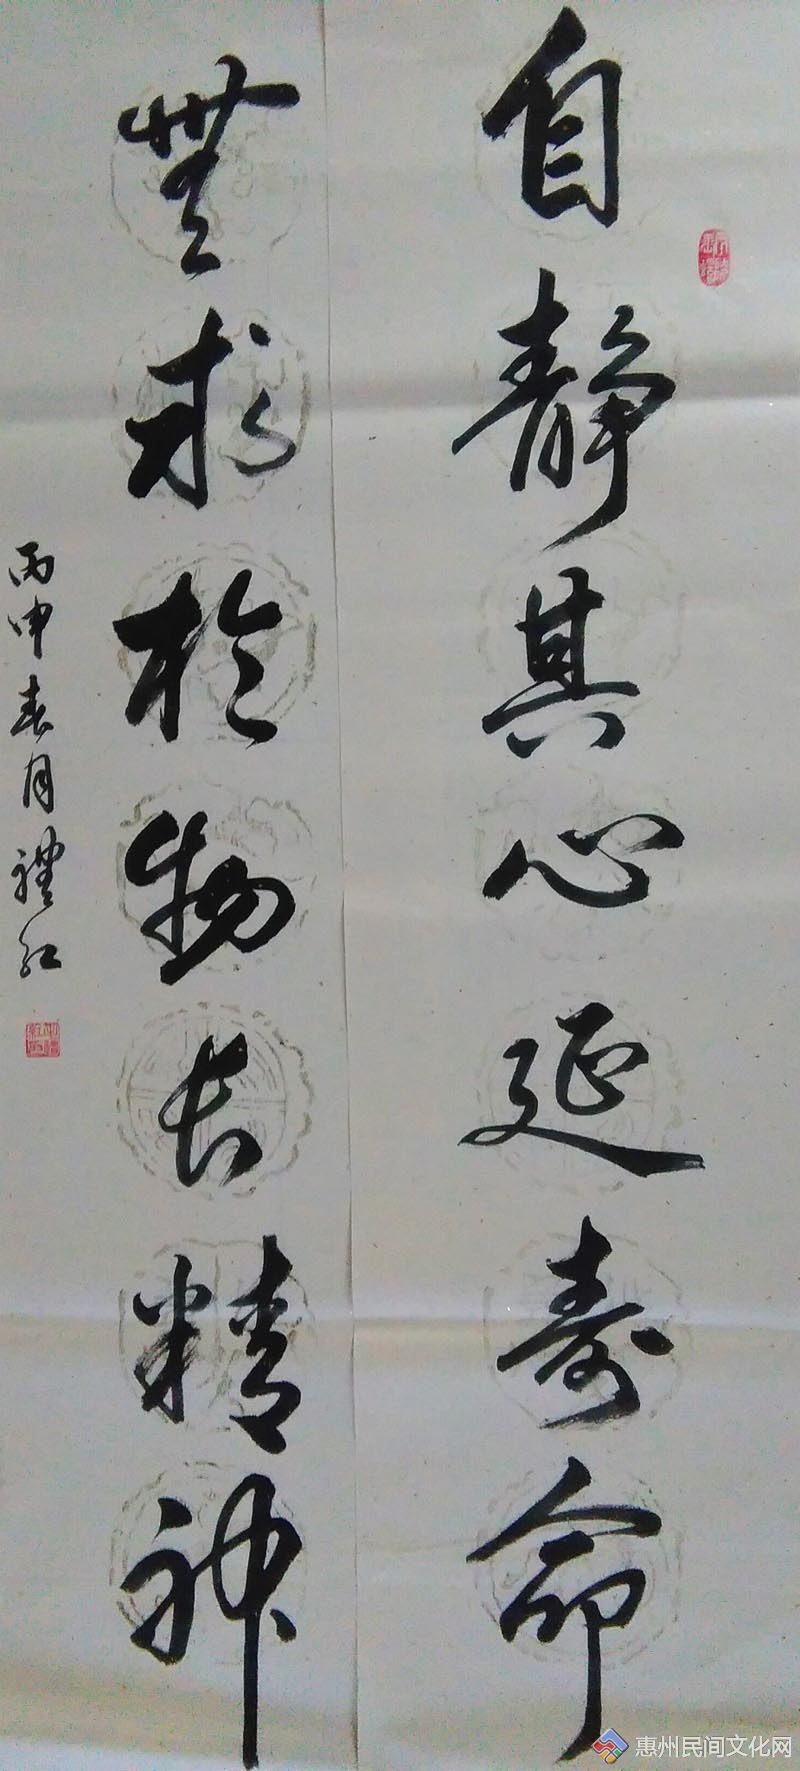 自静其心延寿命
無求於物长精神
丙申春月禮红
惠州民间文化网